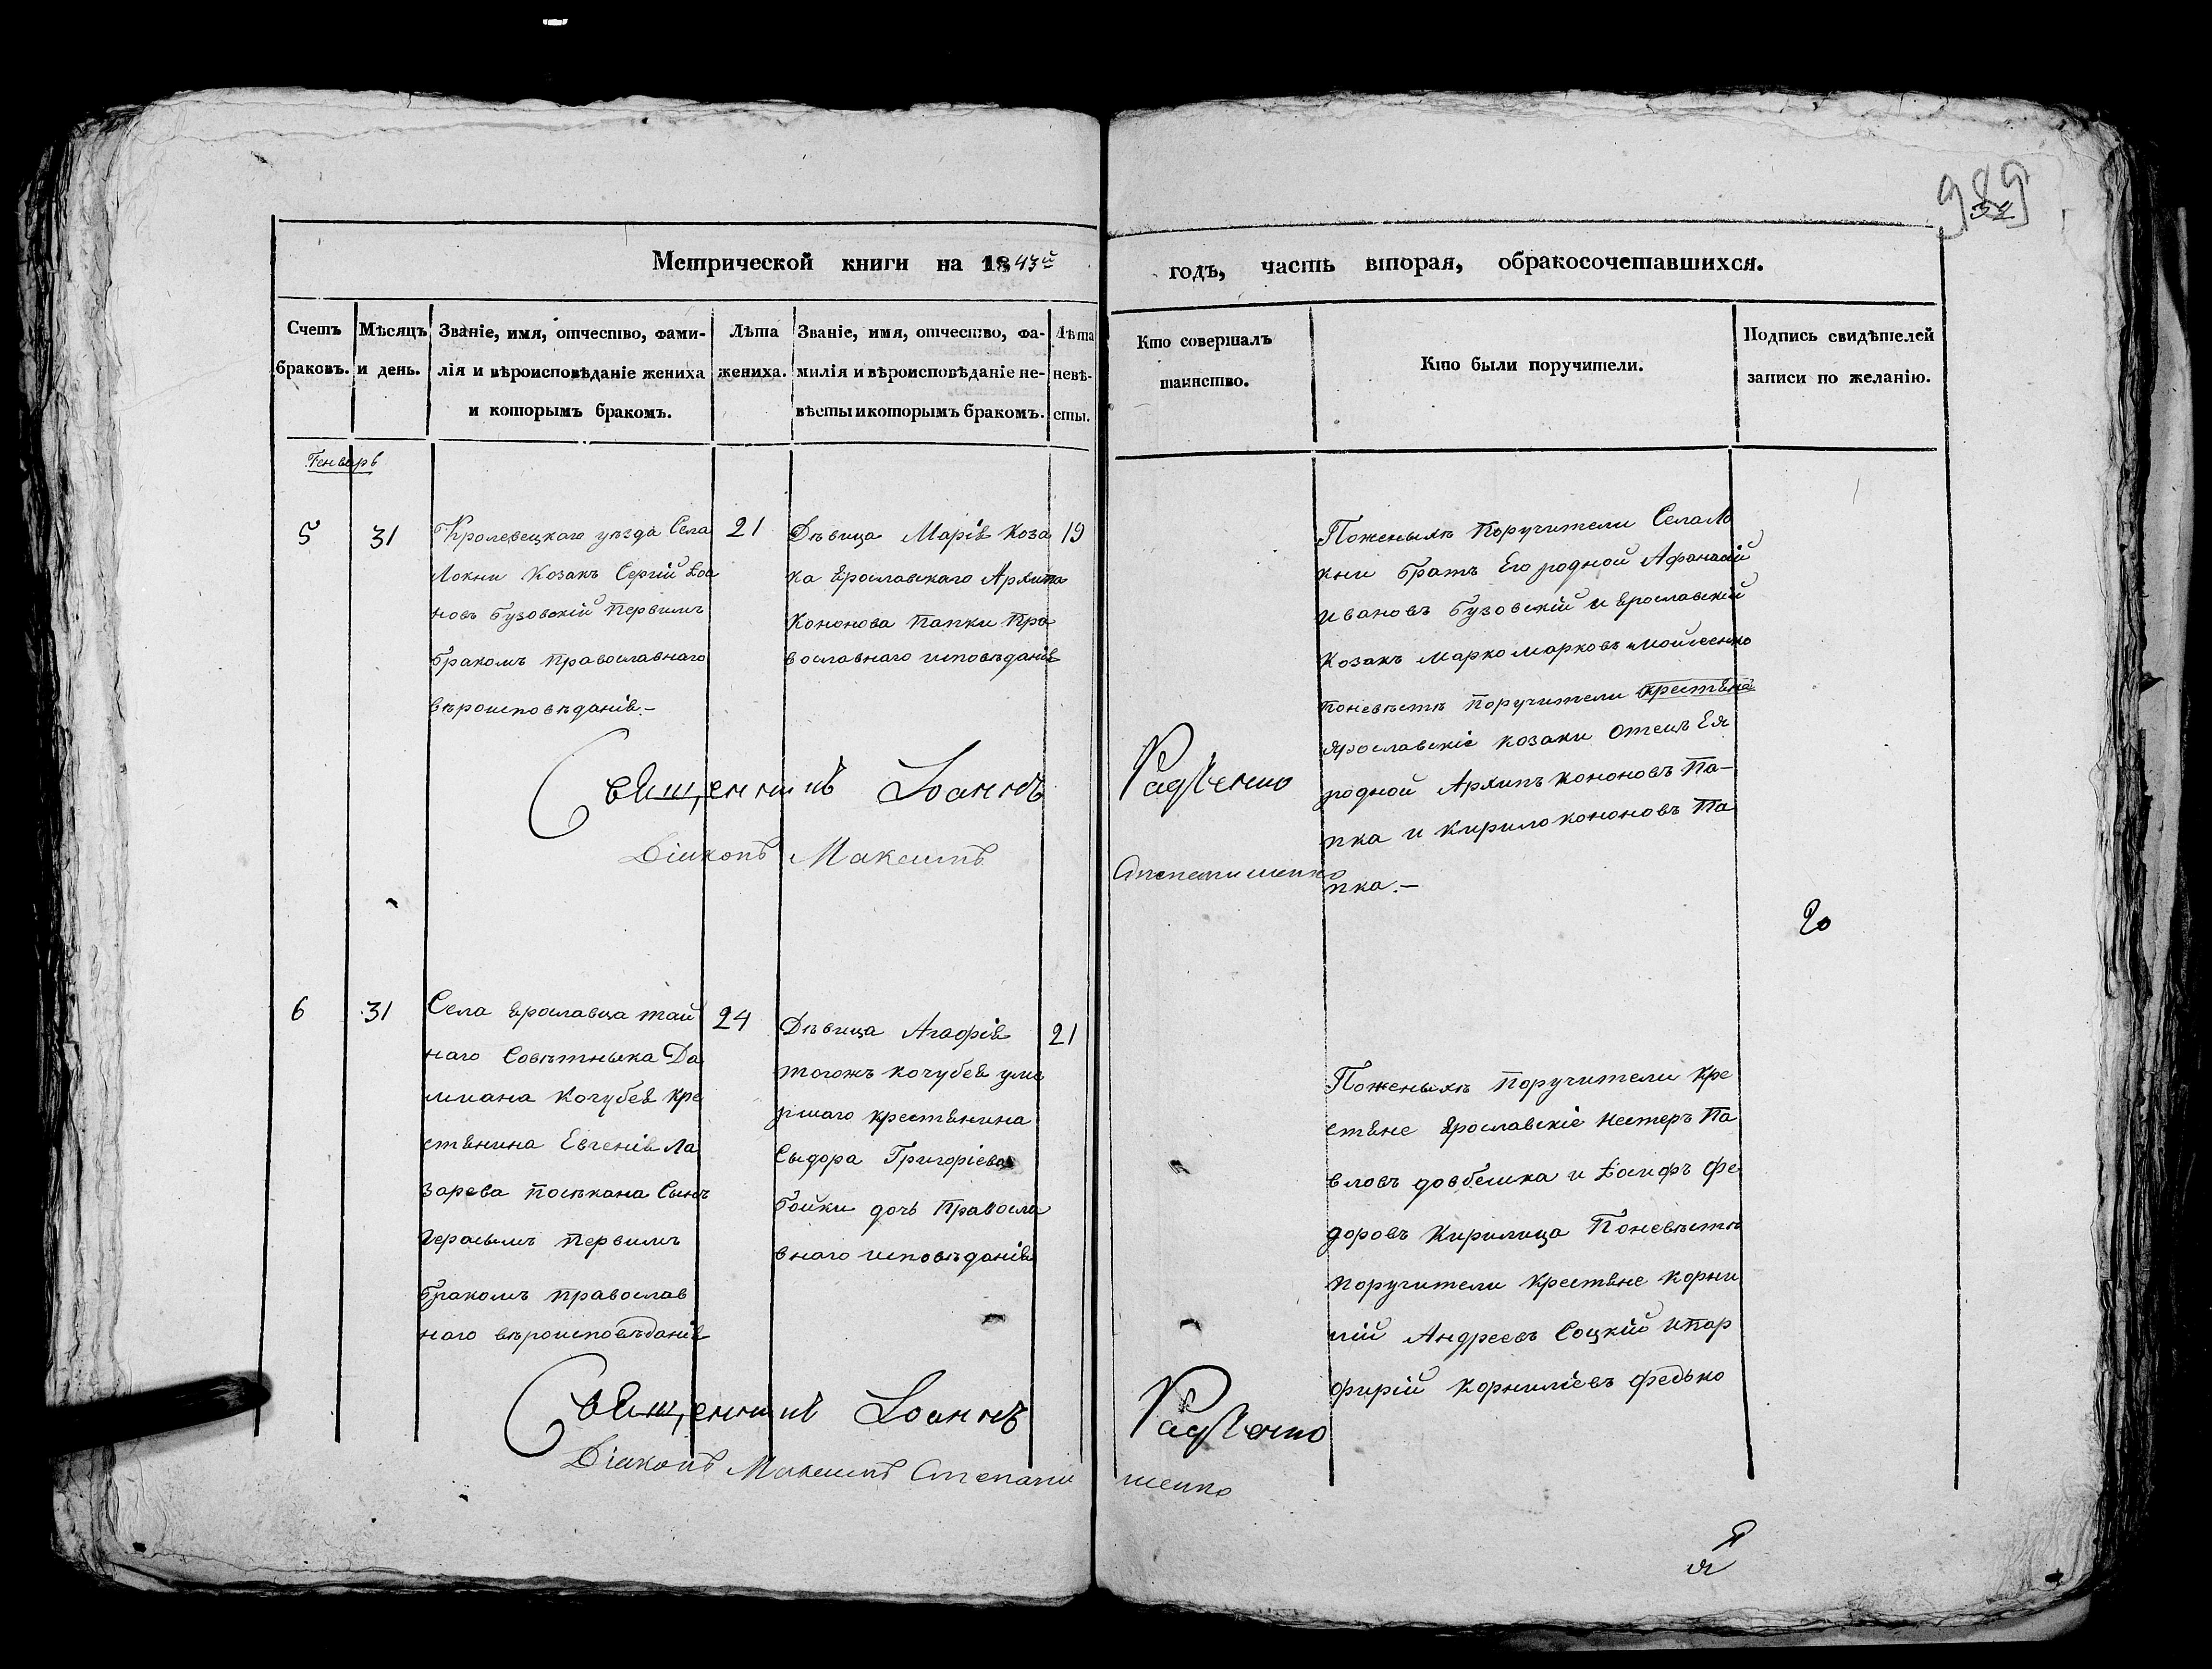 989
34
Метрической книги на 1843й
годъ, часть вторая, обракосочетавшихся.
Счетъ браковъ.
Мѣсяцъ и день.
Званіе, имя, отчество, фами-
лія и вѣроисповѣданіе жениха
и которымъ бракомъ.
Лѣта
жениха.
Званіе, имя, отчество, фа-
милія и вѣроисповѣданіе не-
вѣсты и которымъ бракомъ.
Лѣта
невѣ-
сты.
Кто совершалъ
таинство.
Кто были поручители.
Подпись свидѣтелей
записи по желанію.
Генварь
5
31
Кролевецкаго уѣзда Села
Локни Козакъ Сергій Іоа
новъ Бузовскій Первимъ
бракомъ православнаго
вѣроисповѣданія.-
21
Дѣвица Марія коза
ка Ярославскаго Архипа
Кононова Папки Пра
вославнаго исповѣданія
19
Поженыхѣ Поручители Села Ло
кни братъ Его родной Афанасій
Ивановъ Бузовскій и Ярославскій
Козакъ Марко Марковъ Мойсеенко
поневѣстѣ поручители крестяна
Ярославскіе козаки Отецъ Ея
родной Архипъ Кононовъ Па-
пка и Кирило Кононовъ Па
пка.-
Священникъ Іоаннъ
Радченко
Діаконъ Максимъ
Степаниленко
20
6
31
Села Ярославца тай
наго Совѣтныка Да
миана Кочубея кре
стянина Евгенія Ла
зарева Посѣкана Сынъ
Герасымъ Первимъ
бракомъ православ
наго вѣроисповѣданія
24
Дѣвица Агафія
тогожъ кочубея уме
ршаго крестянина
Сыдора Григоріева
бойки дочь Правосла
внаго исповѣданія
21
Поженыхѣ поручители кре
стяне Ярославскіе Нестеръ Па
вловъ довбешка и Іосифъ Фе
доровъ Кирилица Поневѣстѣ
поручители крестяне корни
лій Андреевъ Соцкій и Пор
фирій Корниліевъ Федько
Священникъ Іоаннъ
Радченко
Діаконъ Максимъ Степани
ленко